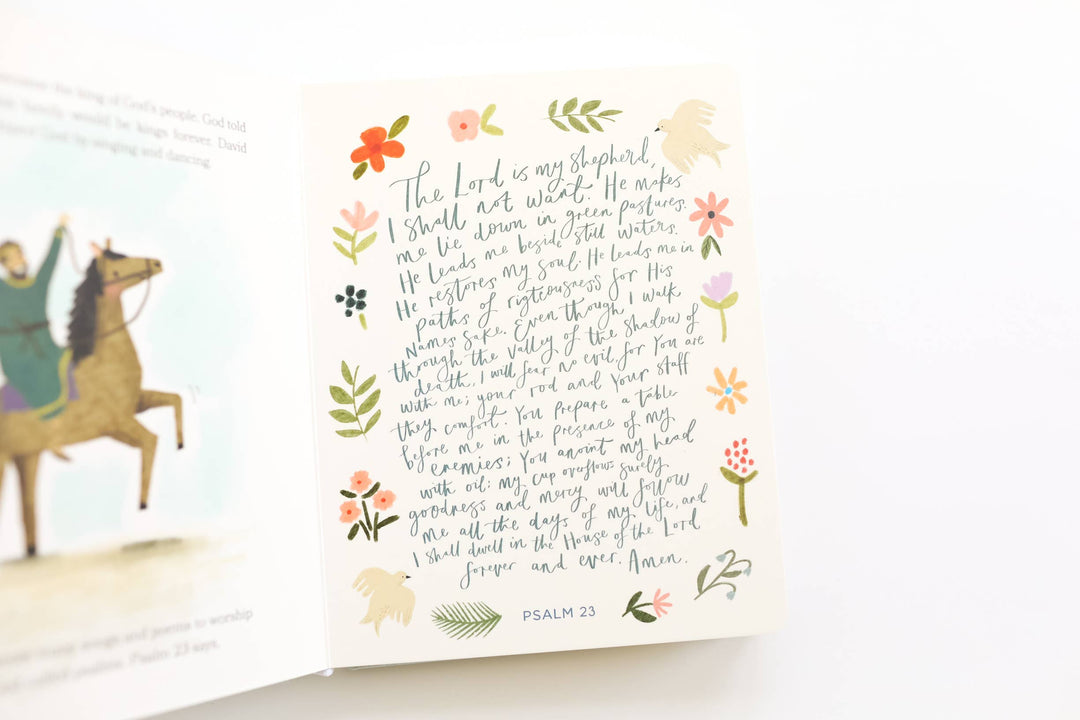 the king of God's people. God told
family would be kings forever. David
God by singing and dancing.
songs and poems to worship
called psalms. Psalm 23 says,
The Lord is my shepherd,
I shall not want. He makes
me lie down in green pastures.
He leads me beside still waters.
He restores my soul. He leads me in
paths of righteousness for His
Names sake. Even though I walk
through the valley of the shadow of
death, I will fear no evil, for you are
with me; your rod and your staff
they comfort. You prepare a table
before me in the presence of my
enemies; you anoint my head
with oil: my cup overflows surely
goodness and mercy will follow
me all the days of my life, and
I shall dwell in the House of the Lord
forever and ever. Amen.
PSALM 23